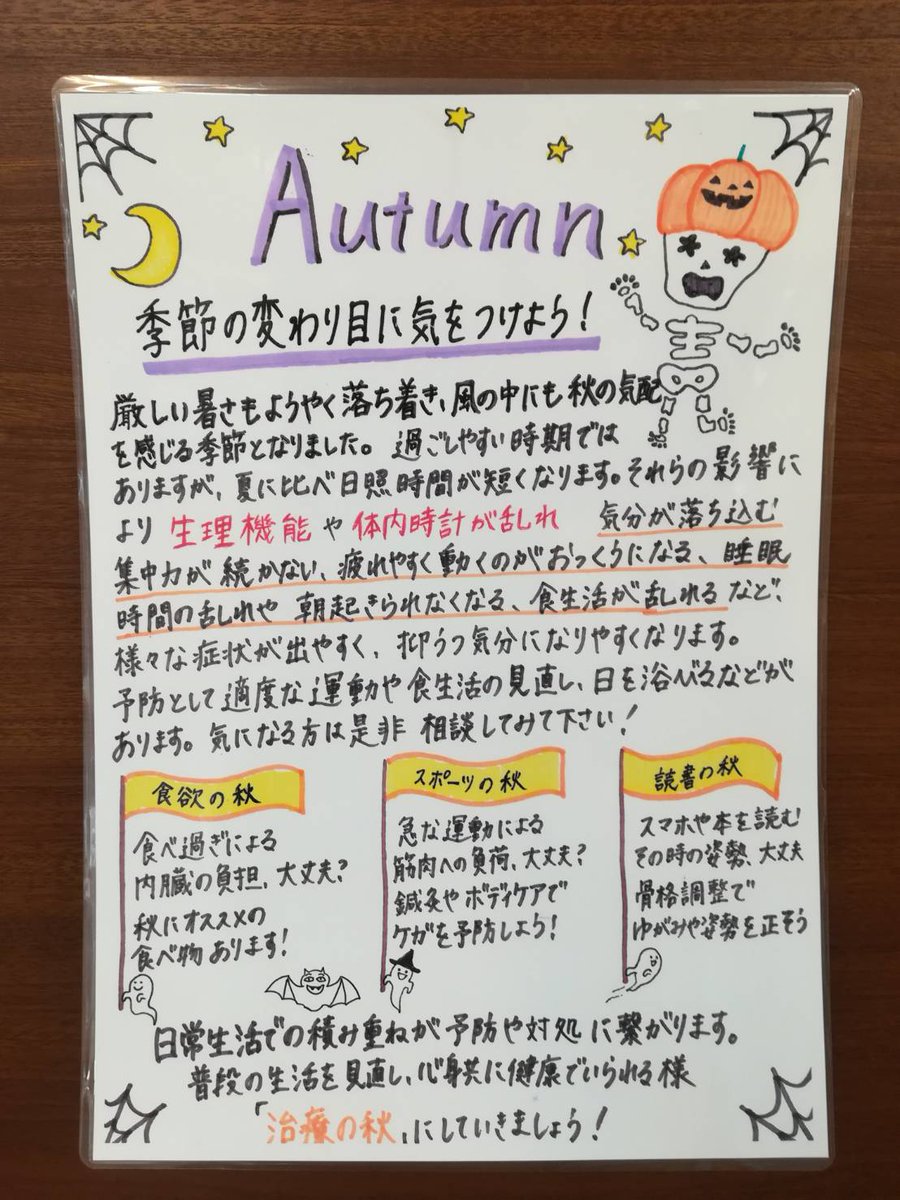 Autumn
季節の変わり目に気をつけよう！
厳しい暑さもようやく落ち着き、風の中にも秋の気配
を感じる季節となりました。過ごしやすい時期では
ありますが、夏に比べ日照時間が短くなります。それらの影響に
より 生理機能や体内時計が乱れ 気分が落ち込む
集中力が続かない、疲れやすく動くのがおっくうになる、睡眠
時間の乱れや 朝起きられなくなる、食生活が乱れるなど、
様々な症状が出やすく、抑うつ気分になりやすくなります。
予防として適度な運動や食生活の見直し、日を浴べるなどが
あります。気になる方は是非 相談してみて下さい！
食欲の秋
食べ過ぎによる
内臓の負担、大丈夫？
秋にオススメの
食べ物あります！
スポーツの秋
急な運動による
筋肉への負荷、大丈夫？
鍼灸やボディケアで
ケガを予防しよう！
読書の秋
スマホや本を読む
その時の姿勢、大丈夫
骨格調整で
ゆがみや姿勢を正そう
日常生活での積み重ねが予防や対処に繋がります。
普段の生活を見直し、心身共に健康でいられる様
「治療の秋」にしていきましょう！